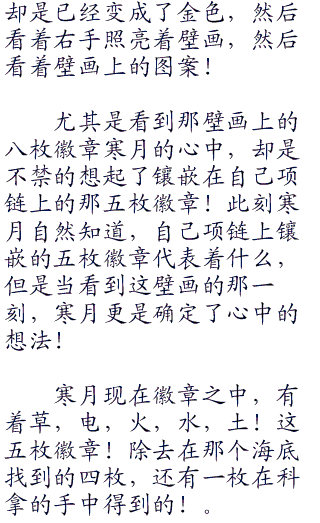 却是已经变成了金色，然后
看着右手照亮着壁画，然后
看着壁画上的图案！
尤其是看到那壁画上的
八枚徽章寒月的心中，却是
不禁的想起了镶嵌在自己项
链上的那五枚徽章！此刻寒
月自然知道，自己项链上镶
嵌的五枚徽章代表着什么，
但是当看到这壁画的那一
刻，寒月更是确定了心中的
想法！
寒月现在徽章之中，有
着草，电，火，水，土！这
五枚徽章！除去在那个海底
找到的四枚，还有一枚在科
拿的手中得到的！。